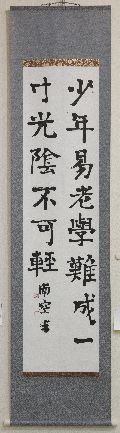 少年易老學難成一
寸光陰不可輕
南空書